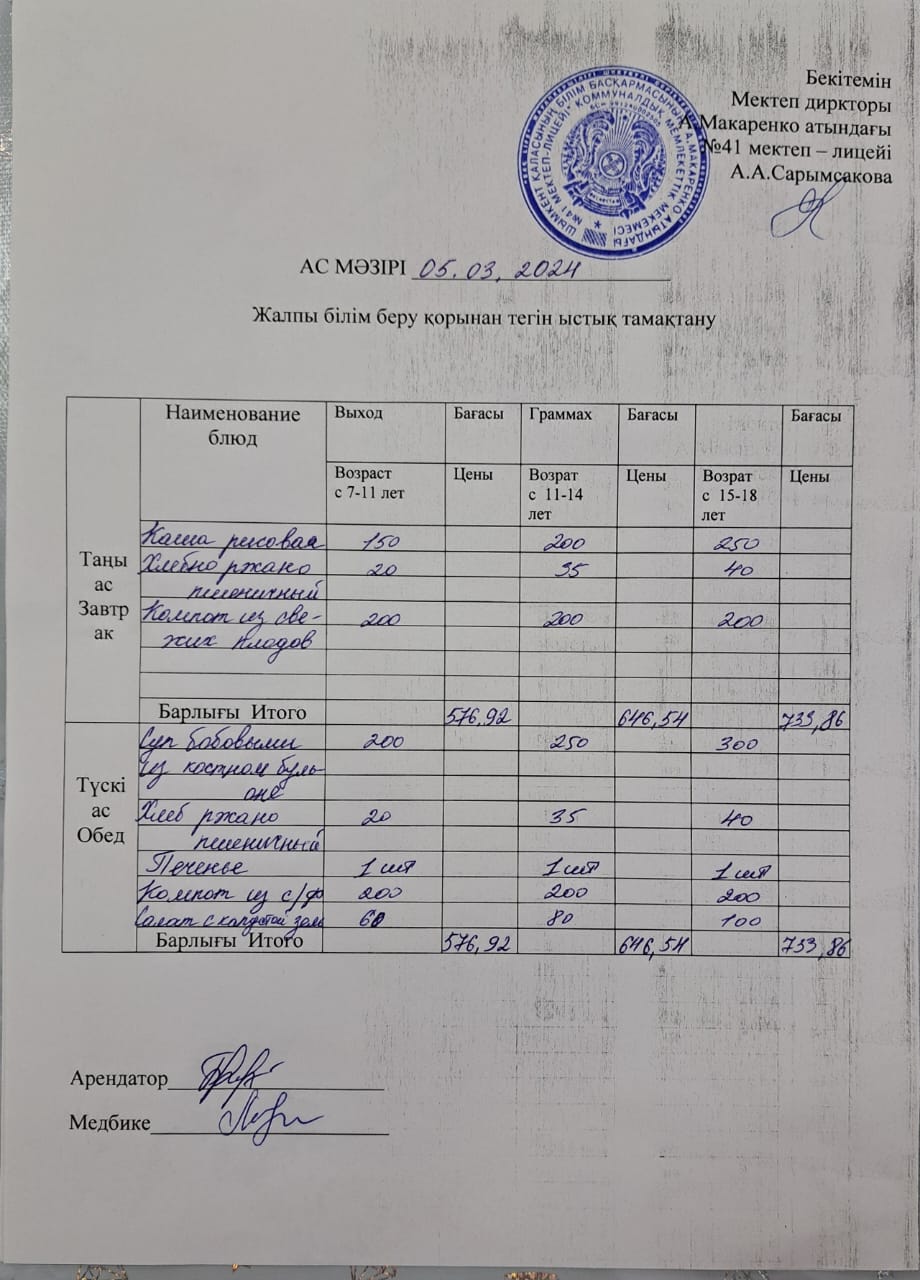 Бекітемін
Мектеп дирkторы
А.Макаренко атындағы
№41 мектеп – лицейі
А.А.Сарымсакова
АС МӘЗІРІ 05.03, 2024
Жалпы білім беру қорынан тегін ыстық тамақтану
Наименование блюд Выход Бағасы Граммах Бағасы Бағасы
Возраст с 7-11 лет Цены Возрат с 11-14 лет Цены Возрат с 15-18 лет Цены
Таңы ас Завтр ак
Каша рисовая 150 200 250
Хлебно ржано 20 35 40
пшеничный
Компот из све- 200 200 200
жих плодов
Барлығы Итого 576,92 646,54 733,86
Түскі ас Обед
Суп бобовыми 200 250 300
из костном буль-
оне
Хлеб ржано 20 35 40
пшеничный
Печенье 1 шт 1 шт 1 шт
Компот из с/ф 200 200 200
Салат с капустой 60 80 100
Барлығы Итого 576,92 646,54 733,86
Арендатор
Медбике